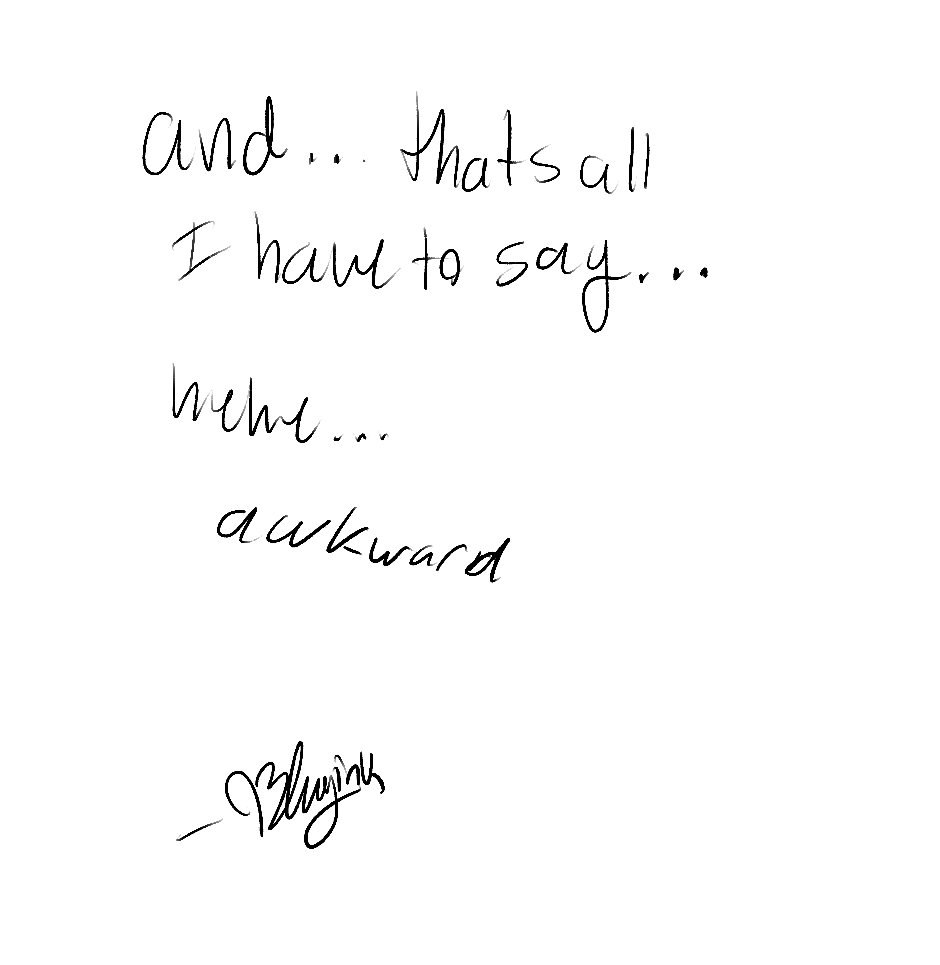 and... thats all
I have to say...
hehe...
awkward